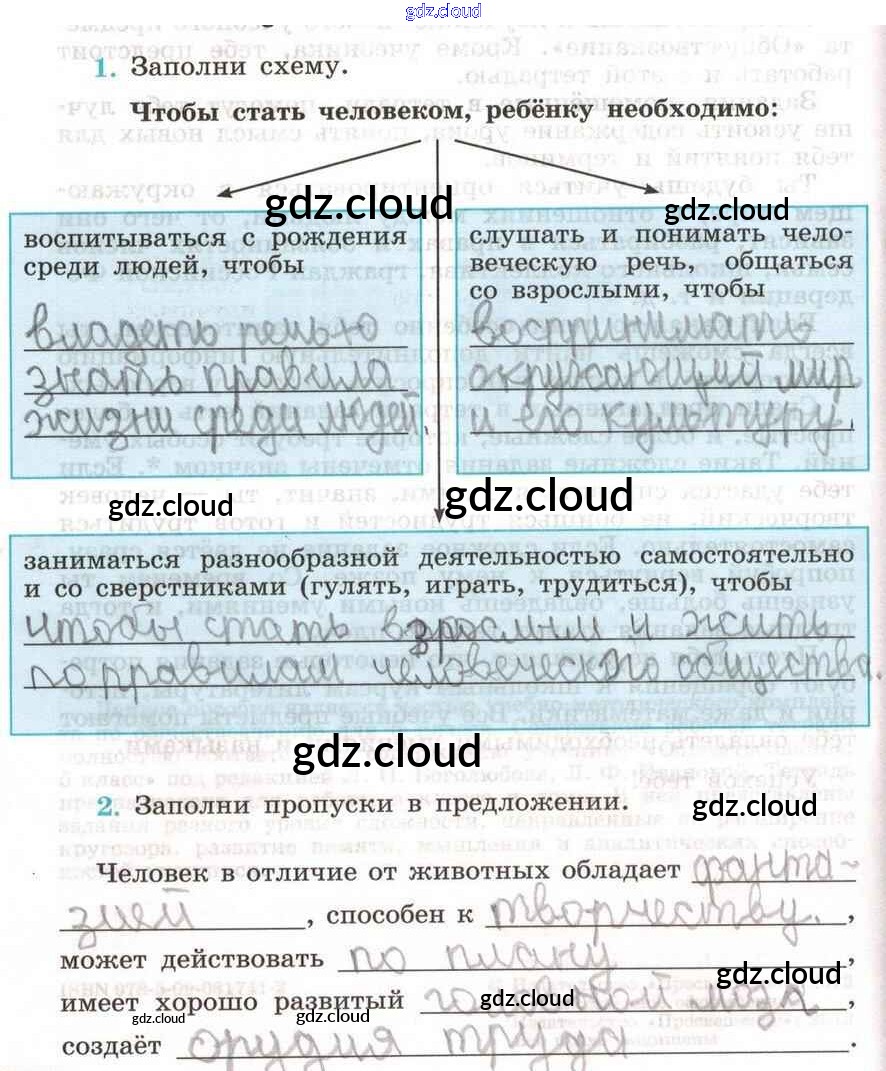 gdz.cloud
1. Заполни схему.
Чтобы стать человеком, ребёнку необходимо:
gdz.cloud
gdz.cloud
воспитываться с рождения
среди людей, чтобы
владеть речью
знать правила
жизни среди людей.
слушать и понимать чело-
веческую речь, общаться
со взрослыми, чтобы
воспринимать
окружающий мир
и его культуру.
gdz.cloud
gdz.cloud
заниматься разнообразной деятельностью самостоятельно
и со сверстниками (гулять, играть, трудиться), чтобы
чтобы стать взрослым и жить
по правилам человеческого общества.
gdz.cloud
2. Заполни пропуски в предложении.
gdz.cloud
Человек в отличие от животных обладает фанта-
зией, способен к творчеству.,
может действовать по плану,
gdz.cloud
имеет хорошо развитый головной мозг,
gdz.cloud
gdz.cloud
gdz.cloud
создаёт орудия труда.